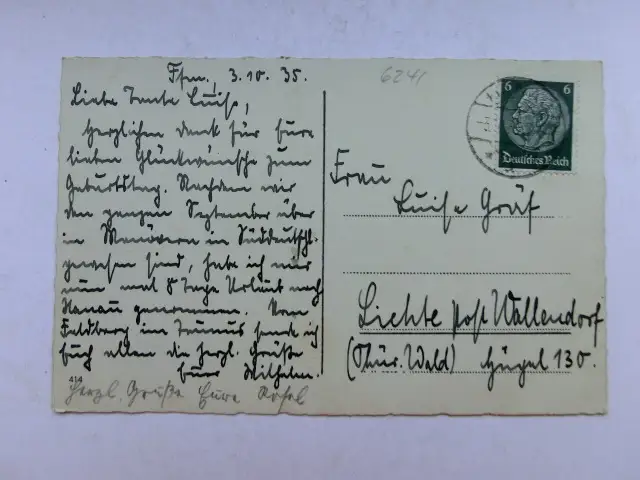 Ffm., 3.10.35.
Liebe Tante Luise,
Herzlichen Dank für Eure
lieben Glückwünsche zum
Geburtstag. Nachdem wir
den ganzen September über
im Manövern in Süddeutschl.
gewesen sind, habe ich mir
nun mal 8 Tage Urlaub nach
Hanau genommen. Vom
Feldberg im Taunus sende ich
Euch allen die herzl. Grüße
Euer Wilhelm.
Herzl. Grüße Eure
414
6241
6 6
Deutsches Reich
Frau
Luise Gräf
Lichte post Wallendorf
(Thür. Wald) Hügel 130.